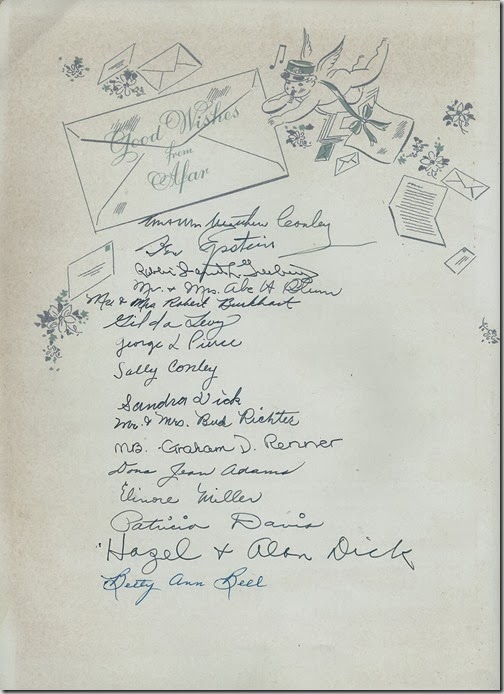 Good Wishes
from
Afar
Mr. & Mrs. Matthew Conley
Epstein
Rabbi
Mr. & Mrs. Abe H.
Mr & Mrs Robert Burkhart
Gilda Levy
George L Pierce
Sally Conley
Sandra Dick
Mr. & Mrs. Bud Richter
Mrs. Graham D. Renner
Dona Jean Adams
Elinore Miller
Patricia Davis
Hazel & Alan Dick
Betty Ann Bell